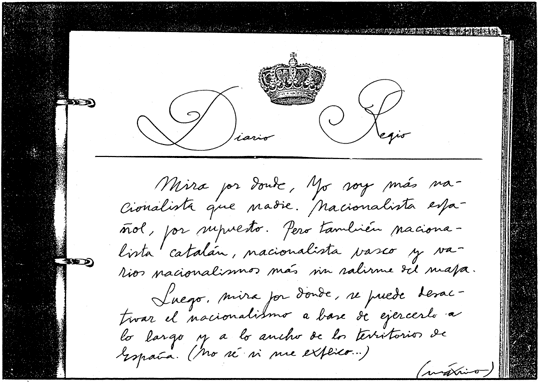 Diario Regio
Mira por donde, Yo soy más na-
cionalista que nadie. Nacionalista espa-
ñol, por supuesto. Pero también naciona-
lista catalán, nacionalista vasco y va-
rios nacionalismos más sin salirme del mapa.
Luego, mira por donde, se puede desac-
tivar el nacionalismo a base de ejercerlo a
lo largo y a lo ancho de los territorios de
España. (No sé si me explico...)
(máximo)